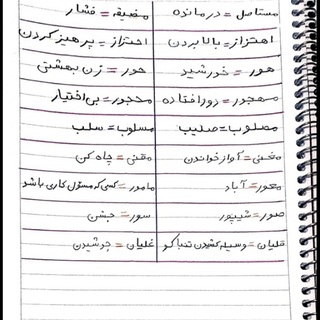 مستاصل = درمانده مضیقه = فشار
اهتزاز = بالا بردن احتراز = پرهیز کردن
هور = خورشید حور = زن بهشتی
مهجور = دور افتاده محجور = بی اختیار
مصلوب = صلیب مسلوب = سلب
مغنی = آواز خواندن مقنی = چاه کن
معمور = آباد مامور = کسی که مسئول کاری باشد
صور = شیپور سور = جشن
قلیان = وسیله کشیدن تنباکو غلیان = جوشیدن